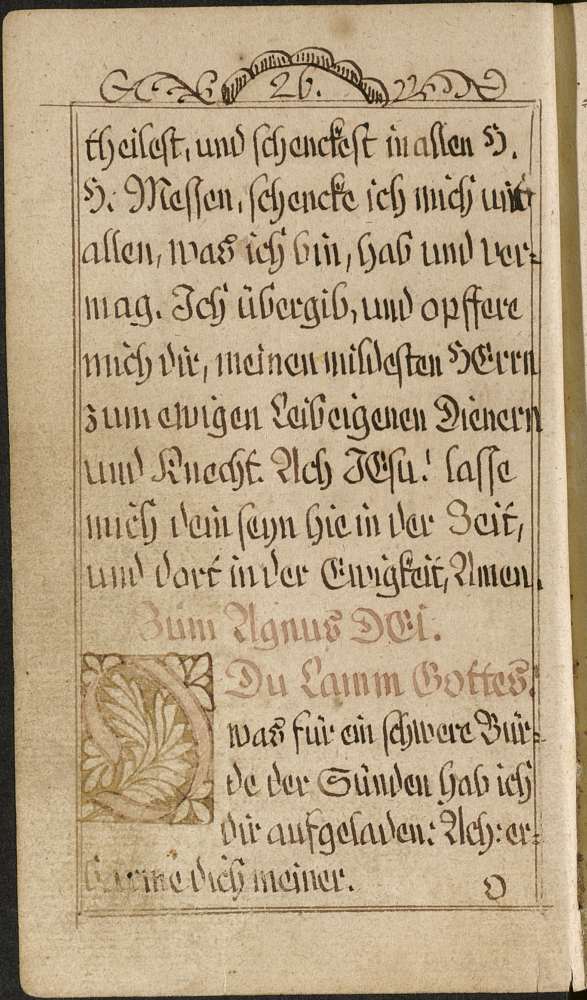 26.
theilest, und schenckest in allen H.
H: Messen, schencke ich mich mit
allen, was ich bin, hab und ver=
mag. Ich übergib, und opffere
mich dir, meinen mildesten HErrn
zum ewigen Leibeigenen Dienern
und Knecht. Ach JEsu! lasse
mich dein seyn hie in der Zeit,
und dort in der Ewigkeit, Amen.
Zum Agnus DEi.
O Du Lamm Gottes!
was für ein schwere Bür=
de der Sünden hab ich
dir aufgeladen: Ach: er=
barme dich meiner.
O